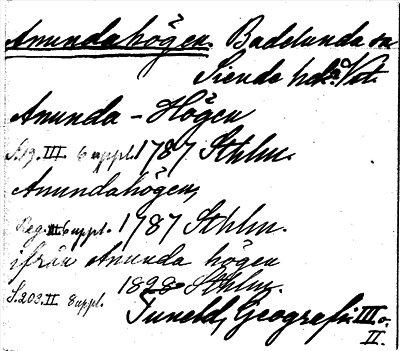 Anundahögen. Badelunda sn
Siende hd. Vstm.
Anunda-Högen
S.19. III. 6 uppl. 1787 Sthlm.
Anundahögen,
Reg. III 6 uppl. 1787 Sthlm.
ifrån Anunda högen
1828 Sthlm.
S.203. II 8 uppl.
Tuneld, Geografi. III o.
II.